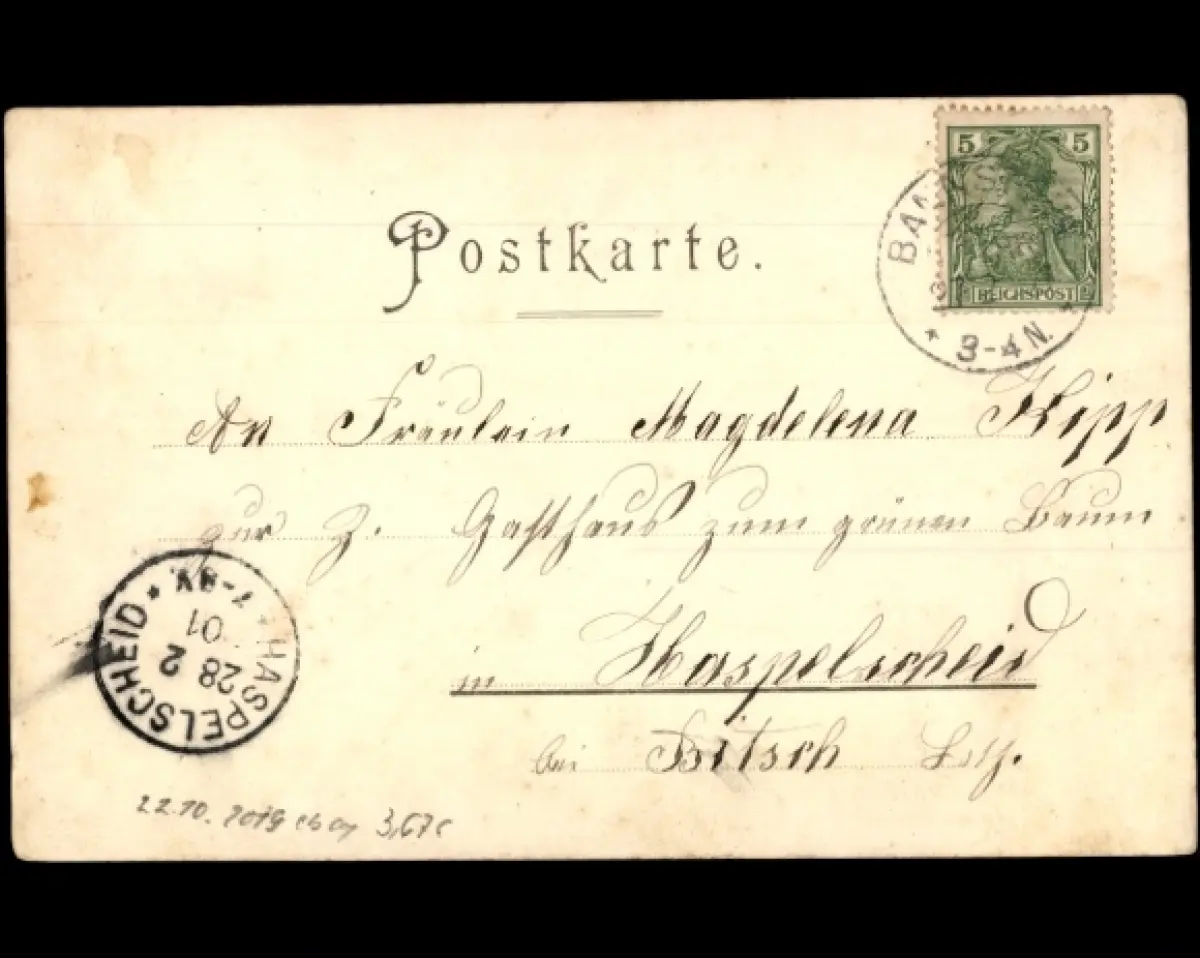 5 5
REICHSPOST
3-4N.
Postkarte.
An Fräulein Magdelena Hipp
zur Z. Gasthaus zum grünen Baum
in Haspelscheid
bei Bitsch Loth.
HASPELSCHEID
28 2
01
7-8V.
22.10. 2019 ebay 3,67€